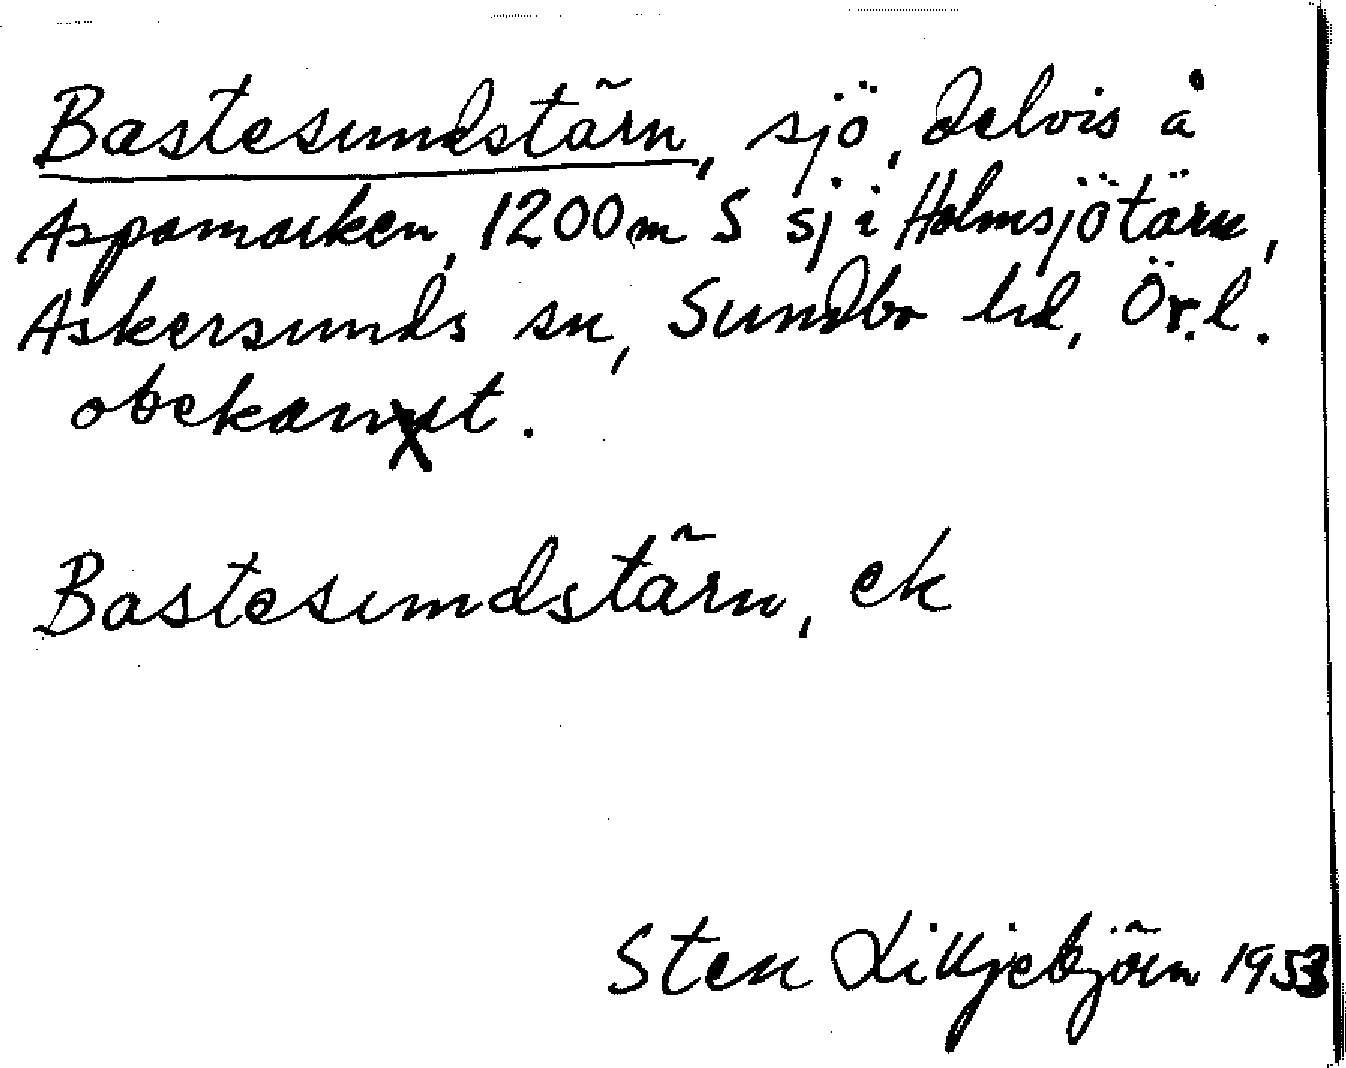 Bastesundstärn, sjö, delvis å
Aspamarken, 1200 m S sj i Holmsjötärn,
Askersunds sn, Sundbo hd, Ör.l.
obekant.
Bastesundstärn, ek
Sten Lilljebjörn 1953